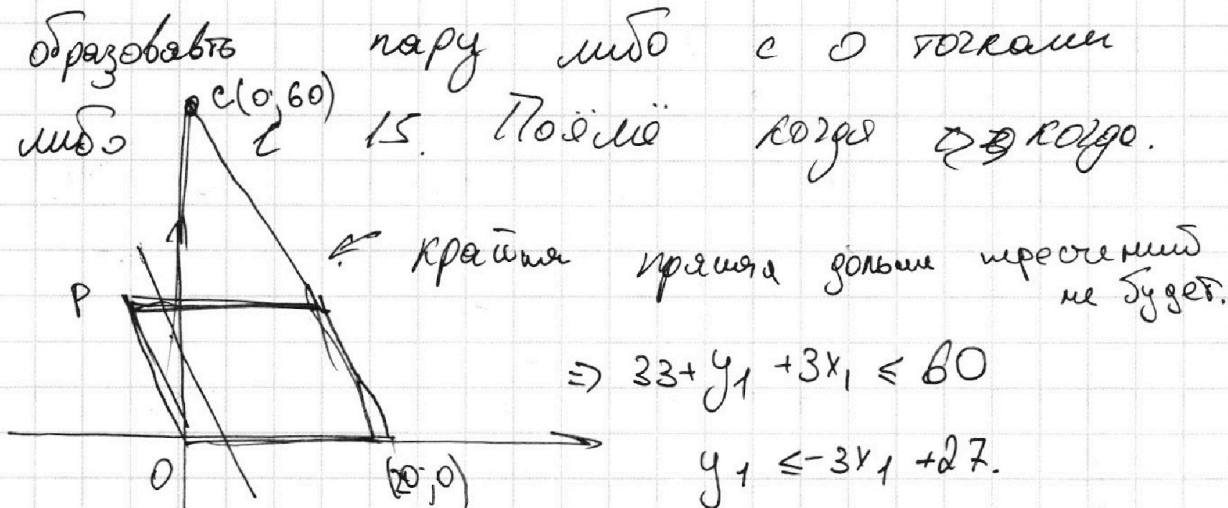 образовавть пару либо с 0 точками
C(0;60)
либо с 15. Поймё когда когда.
крайняя прямая дальше пересечений
не будет.
P
⇒ 33+y₁ +3x₁ ≤ 60
y₁ ≤ -3x₁ +27.
O (20;0)